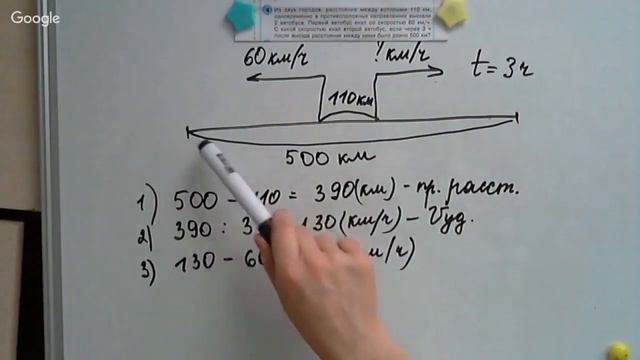 Google
4 Из двух городов, расстояние между которыми 110 км,
одновременно в противоположных направлениях выехали
2 автобуса. Первый автобус ехал со скоростью 60 км/ч.
С какой скоростью ехал второй автобус, если через 3 ч
после выезда расстояние между ними было равно 500 км?
60 км/ч ? км/ч t = 3 ч
110 км
500 км
1) 500 – 110 = 390 (км) – пр. расст.
2) 390 : 3 130 (км/ч) – Vуд.
3) 130 – 60 м/ч)